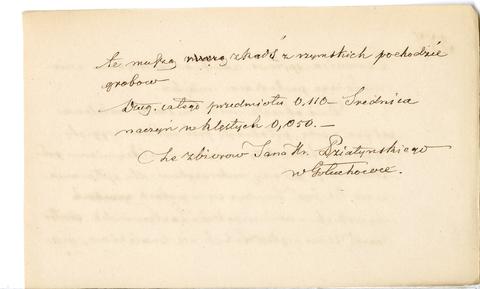 te muszą skądś z rzymskich pochodzić
grobow
Dług. całego przedmiotu 0,110 – Średnica
naczyń wklęsłych 0,050. –
Ze zbiorow Jana Hr. Działyńskiego
w Gołuchowie.